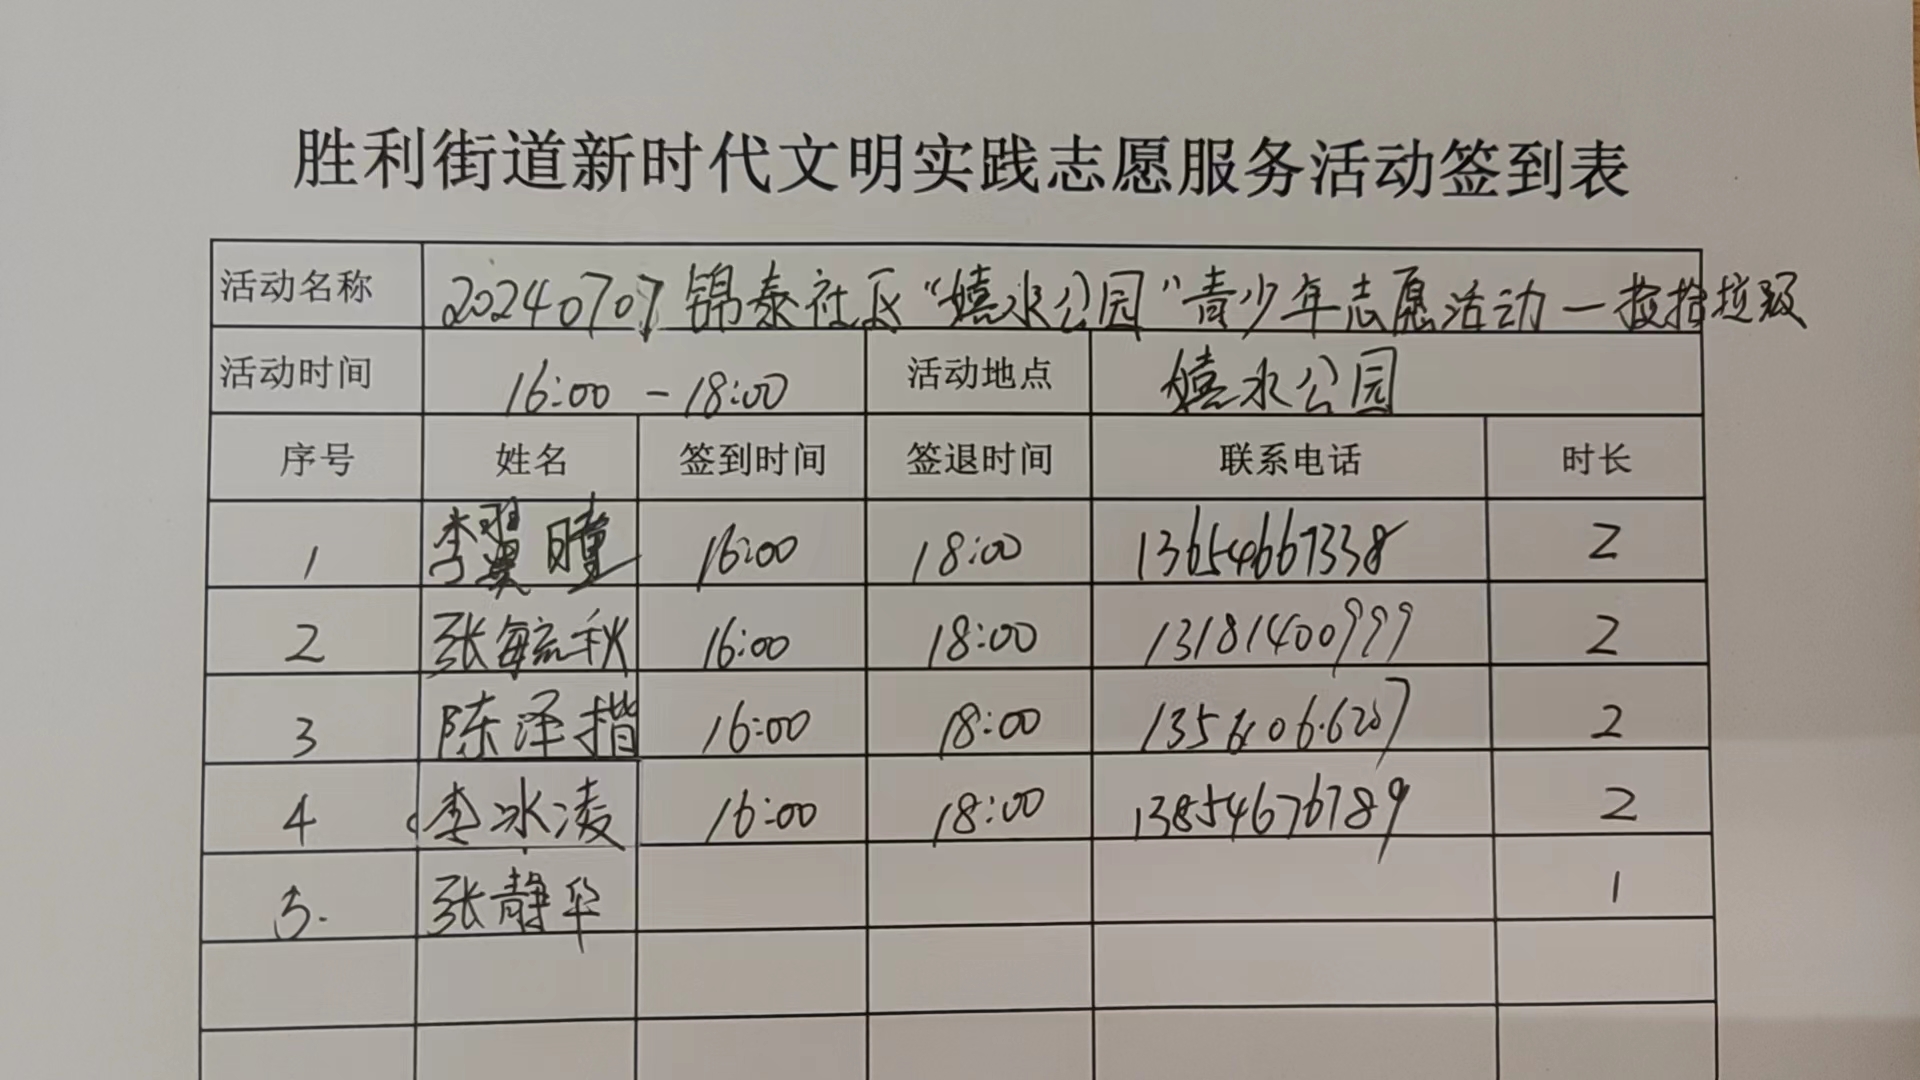 胜利街道新时代文明实践志愿服务活动签到表
活动名称 20240707锦泰社区“嬉水公园”青少年志愿活动一捡拾垃圾
活动时间 16:00-18:00 活动地点 嬉水公园
序号 姓名 签到时间 签退时间 联系电话 时长
1 李翼瞳 16:00 18:00 13654667338 2
2 张毓秋 16:00 18:00 13181400999 2
3 陈泽揩 16:00 18:00 2
4 李冰凌 16:00 18:00 13854676789 2
5. 张静华 1